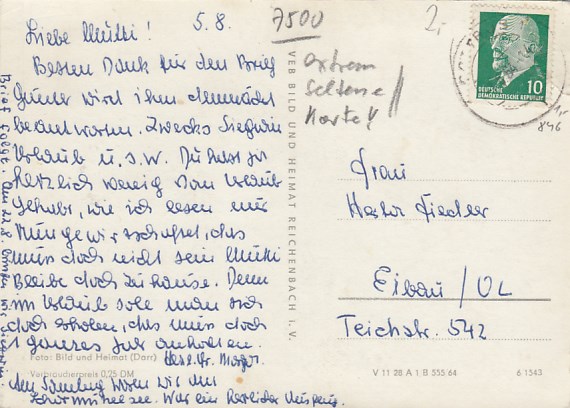 Liebe Mutti! 5.8.
Besten Dank für den Brief
Günter wird ihn demnächst
beantworten. Zwecks
Urlaub u.s.w. Du hast ja
herzlich wenig vom Urlaub
gehabt, wie ich lesen
doch nicht sein Mutti
Bleibe doch zu Hause. Denn
im Urlaub soll man sich
doch erholen, das muss doch
1 ganzes Jahr anhalten.
Foto: Bild und Heimat (Darr)
Verbraucherpreis 0,25 DM
Am Sonntag waren wir am
War ein herrlicher Ausflug.
Brief folgt. Am 22.8.
VEB BILD UND HEIMAT REICHENBACH I. V.
7500
2,-
extrem
seltene
Karte!!
DEUTSCHE
DEMOKRATISCHE REPUBLIK
10
846
Frau
Fiedler
Eibau / OL
Teichstr. 542
V 11 28 A 1 B 555 64
6 1543